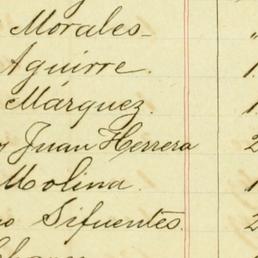 Morales-
Aguirre.
Márquez.
Juan Herrera
Molina.
Sifuentes.